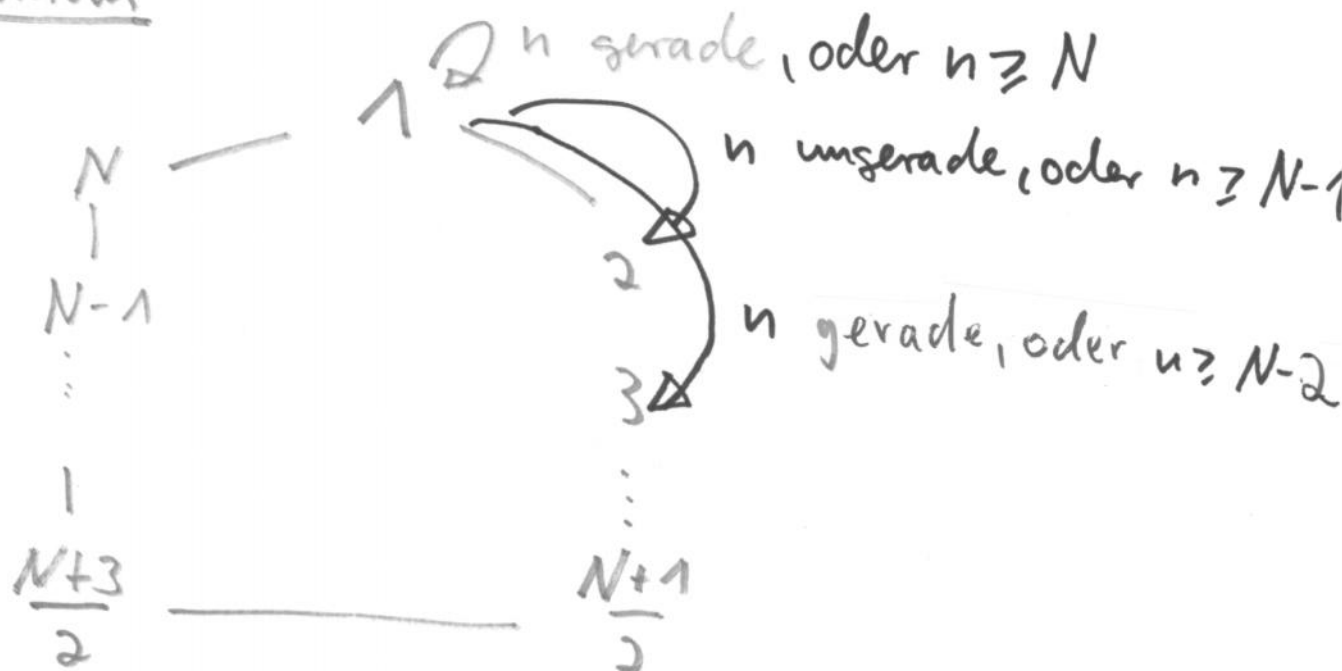 n gerade, oder n ≥ N
1
N
n ungerade, oder n ≥ N-1
2
N-1
n gerade, oder n ≥ N-2
3
N+3
2
N+1
2